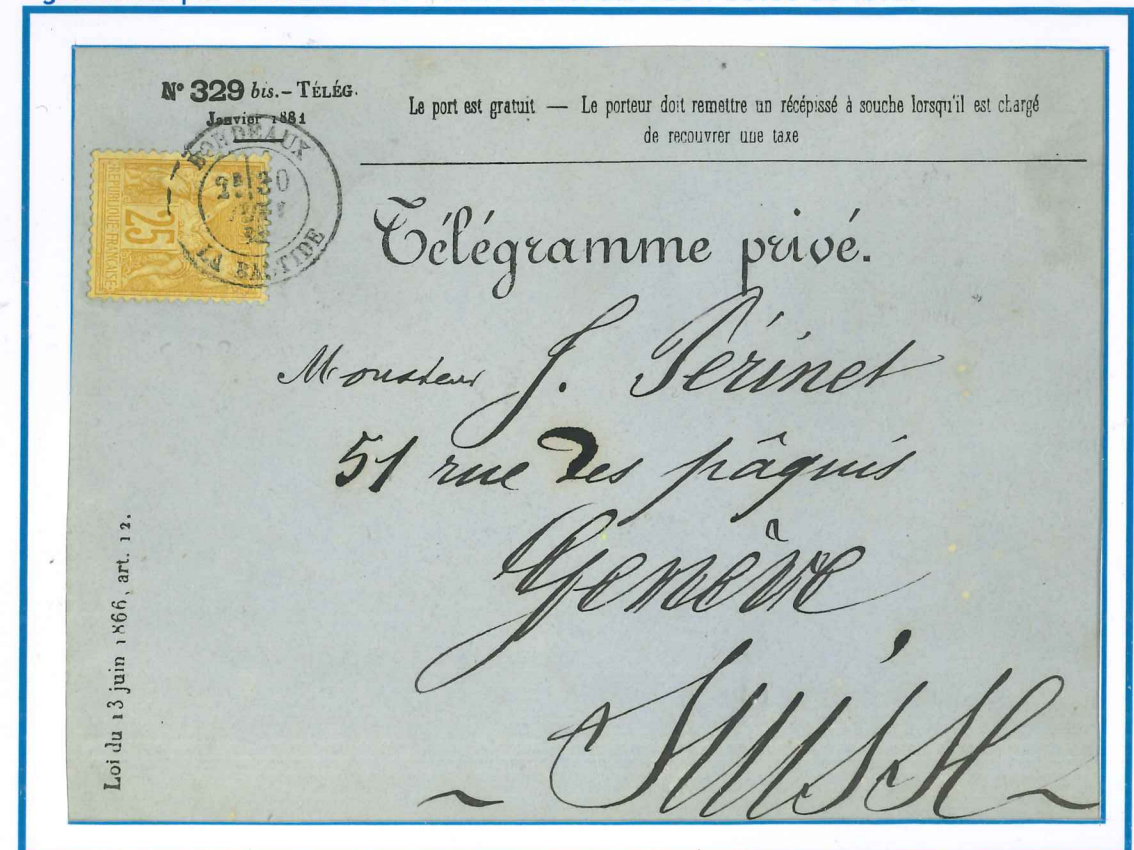 N° 329 bis. – TÉLÉG.
Janvier 1881
Le port est gratuit — Le porteur doit remettre un récépissé à souche lorsqu'il est chargé
de recouvrer une taxe
BORDEAUX
30
LA BASTIDE
REPUBLIQUE FRANÇAISE
25
Télégramme privé.
Monsieur J. Périnet
51 rue des pâquis
Genève
Suisse
Loi du 13 juin 1866, art. 12.